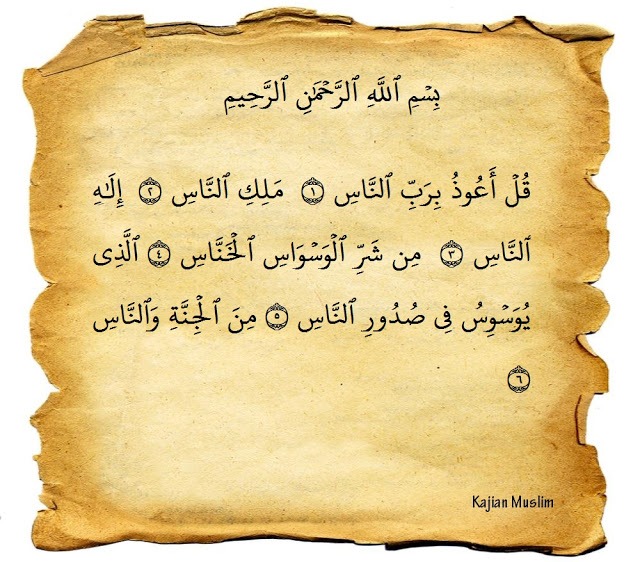 بِسۡمِ ٱللَّهِ ٱلرَّحۡمَٰنِ ٱلرَّحِيمِ
قُلۡ أَعُوذُ بِرَبِّ ٱلنَّاسِ ١ مَلِكِ ٱلنَّاسِ ٢ إِلَٰهِ
ٱلنَّاسِ ٣ مِن شَرِّ ٱلۡوَسۡوَاسِ ٱلۡخَنَّاسِ ٤ ٱلَّذِى
يُوَسۡوِسُ فِى صُدُورِ ٱلنَّاسِ ٥ مِنَ ٱلۡجِنَّةِ وَٱلنَّاسِ
٦
Kajian Muslim